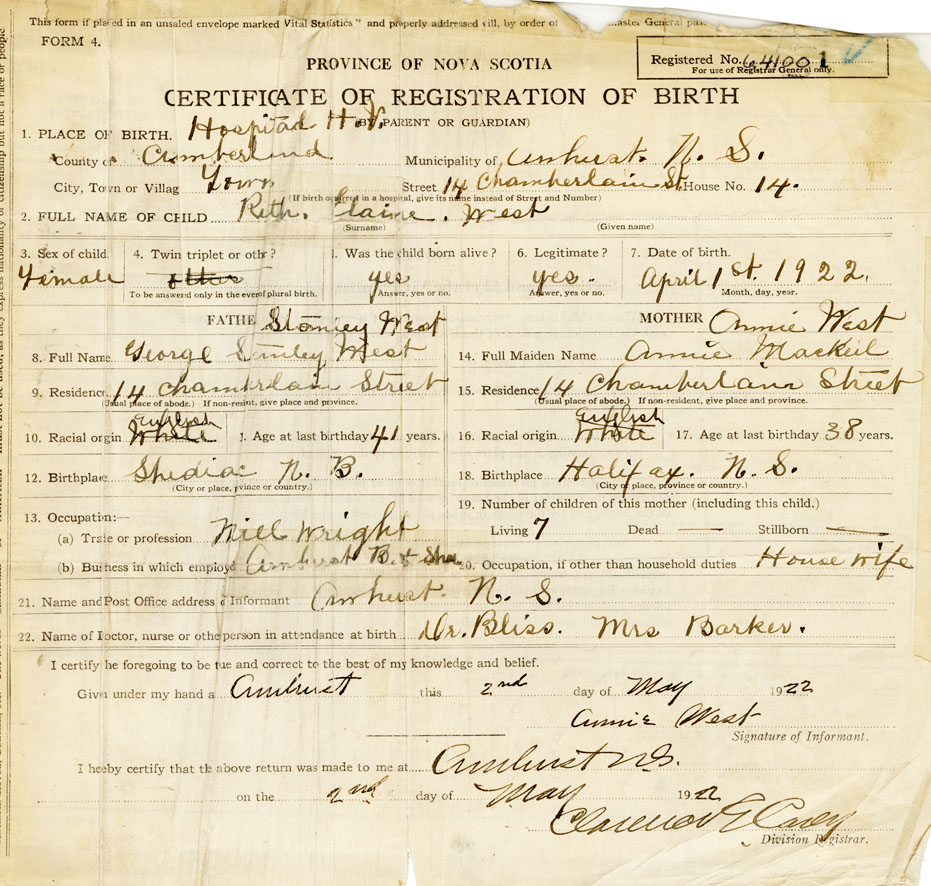 This form if placed in an unsealed envelope marked Vital Statistics" and properly addressed will, by order of aster General pas
FORM 4.
Registered No. 64100 1
For use of Registrar General only.
PROVINCE OF NOVA SCOTIA
CERTIFICATE OF REGISTRATION OF BIRTH
(BY PARENT OR GUARDIAN)
1. PLACE OF BIRTH. Hospital H.V.
County of Cumberland Municipality of Amhurst. N. S.
City, Town or Villag Town Street 14 Chamberlain St. House No. 14.
(If birth occurred in a hospital, give its name instead of Street and Number)
2. FULL NAME OF CHILD Ruth. Elaine. West
(Surname) (Given name)
3. Sex of child. 4. Twin triplet or oth ? . Was the child born alive? 6. Legitimate? 7. Date of birth.
Female yes yes. April 1st. 1922.
To be answered only in the even of plural birth. Answer, yes or no. Answer, yes or no. Month, day, year.
FATHE Stanley West MOTHER Annie West
8. Full Name George Stanley West 14. Full Maiden Name Annie Mackeil
9. Residence 14 Chamberlain Street 15. Residence 14 Chamberlain Street
(Usual place of abode.) If non-resident, give place and province. (Usual place of abode.) If non-resident, give place and province.
English English
10. Racial origin White 1. Age at last birthday 41 years. 16. Racial origin White 17. Age at last birthday 38 years.
12. Birthplace Shediac N. B. 18. Birthplace Halifax. N. S.
(City or place, pvince or country.) (City or place, province or country.)
19. Number of children of this mother (including this child.)
13. Occupation:—
Living 7 Dead — Stillborn —
(a) Trade or profession Mill Wright
(b) Business in which employd Amhurst B. & Shoe 20. Occupation, if other than household duties House wife
21. Name and Post Office address f Informant Amhurst. N. S.
22. Name of Doctor, nurse or othe person in attendance at birth Dr. Bliss. Mrs Barker.
I certify he foregoing to be tue and correct to the best of my knowledge and belief.
Given under my hand a Amhurst this 2nd day of May 1922
Annie West
Signature of Informant.
I heeby certify that the above return was made to me at Amhurst N.S.
on the 2nd day of May 1922
Clarence E Casey
Division Registrar.